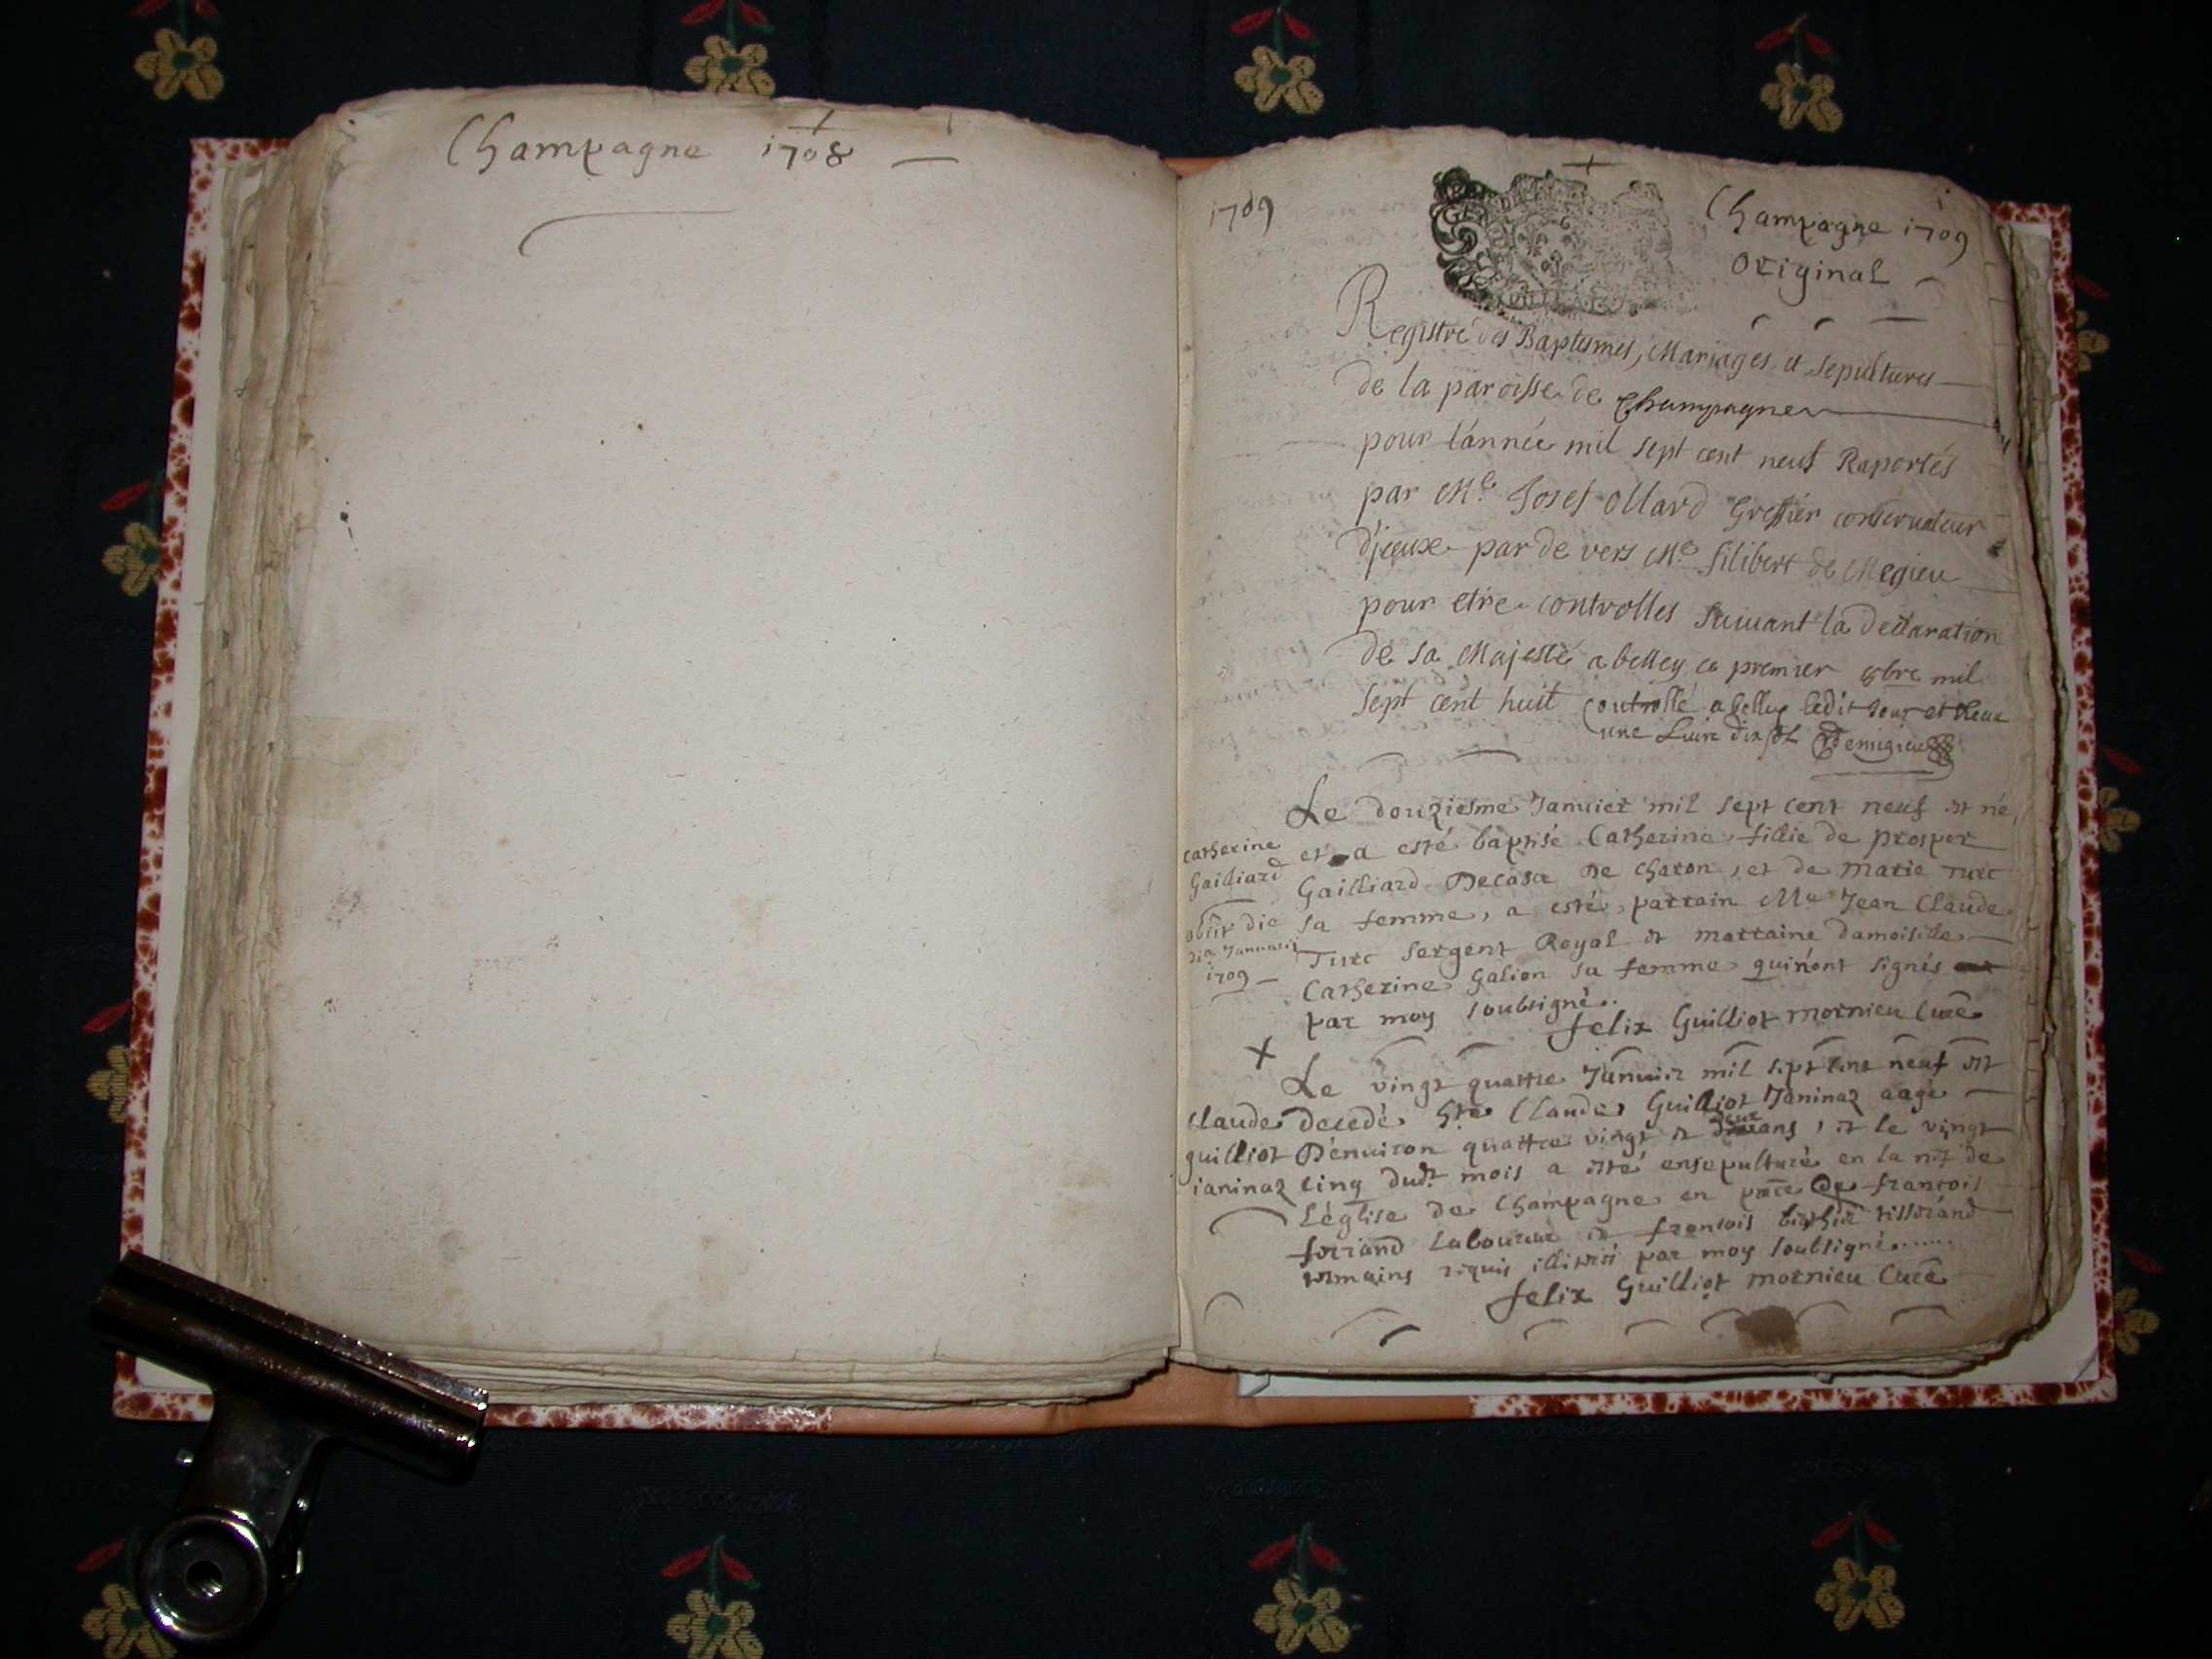 Champagne 1708
1709
Champagne 1709
Original
Registre des Baptesmes, Mariages et sepultures
de la paroisse de Champagne
pour l'année mil sept cent neuf Raportés
par Me Josef ollard Greffier conservateur
d'jceux par de vers Me filibert de Megieu
pour etre controllés suiuant la declaration
de sa Majesté a belley ce premier mil
sept cent huit controllé a belley ledit jour et
une Liure dix sol Demigieu
Le douziesme Januier mil sept cent neuf est né
catherine
et a esté baptisé Catherine fillie de prosper
Gailliard
Gailliard Decosa de charon, et de marie Turc
obiit die
sa femme, a esté parrain Me Jean Claude
Januarii
Turc sergent Royal et marraine damoiselle
1709
Catherine Galion sa femme qui n'ont signés
par moy soubsigné.
felix Guilliot mornieu Curé
Le vingt quattre Januier mil sept cent neuf est
Claude
decedé Claude Guilliot Janinaz aagé
guilliot
D'enuiron quattre vingt et deux ans, et le vingt
ianinaz
cinq dudt mois a esté ensepulturé en la de
L'église de Champagne en pnce de francois
ferrand Laboureur et francois tisserand
temoins requis illiterés par moy soubsigné......
felix Guilliot mornieu Curé